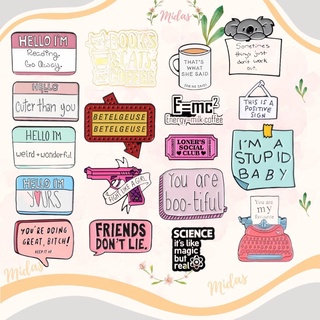 Midas
HELLO I'M
Reading,
Go Away.
HELLO I'M
Cuter than you
HELLO I'M
weird + wonderful
HELLO I'M
YOURS
YOU'RE DOING
GREAT, BITCH!
KEEP IT UP
BOOKS
BETELGEUSE
BETELGEUSE
FIGHT LIKE A GIRL
FRIENDS
DON'T LIE.
THAT'S
WHAT
SHE SAID
E=mc²
Energy=milk·coffee
LONER'S
SOCIAL
CLUB
You are
boo-tiful
SCIENCE
it's like
magic
but
real
Sometimes
things just
don't work
out.
THIS IS A
POSITIVE
SIGN
I'M A
STUPID
BABY
You are
my
favourite
Midas
Midas